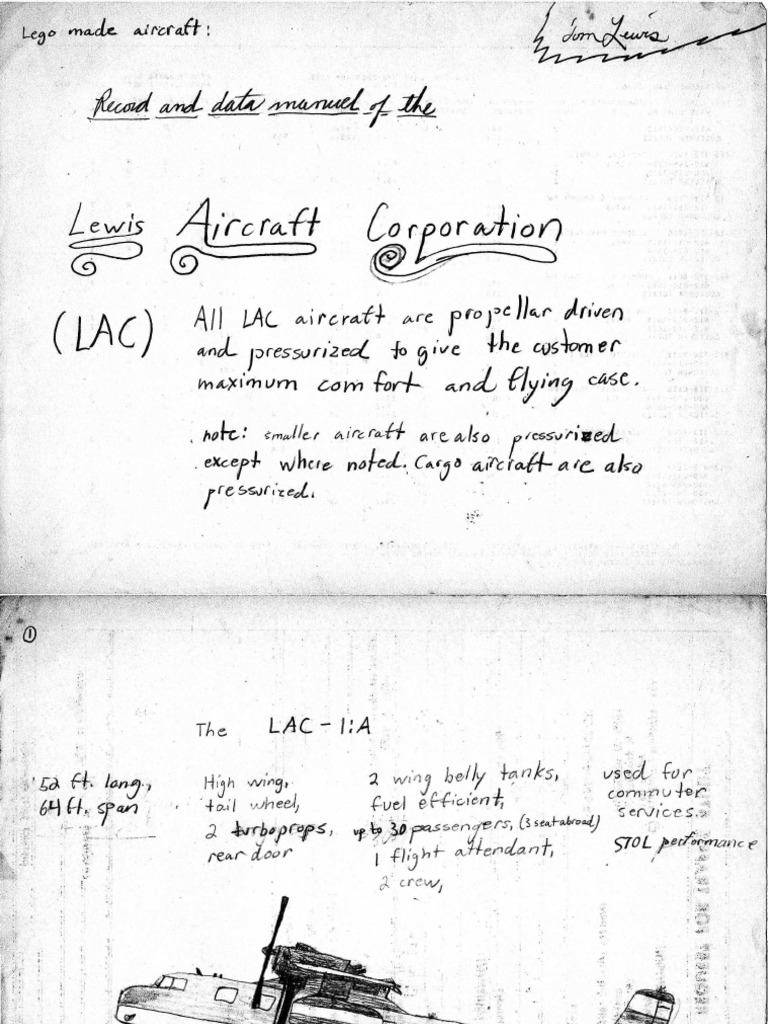 Lego made aircraft:
Tom Lewis
Record and data manuel of the
Lewis Aircraft Corporation
(LAC)
All LAC aircraft are propellar driven
and pressurized to give the customer
maximum comfort and flying ease.
note: smaller aircraft are also pressurized
except where noted. Cargo aircraft are also
pressurized.
①
The LAC-1:A
52 ft. long,
64 ft. span
High wing,
tail wheel,
2 turboprops,
rear door
2 wing belly tanks,
fuel efficient,
up to 30 passengers, (3 seat abroad)
1 flight attendant,
2 crew,
used for
commuter
services.
STOL performance